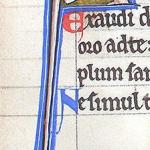 exaudi d
oro ad te:
plum san
Ne simul t